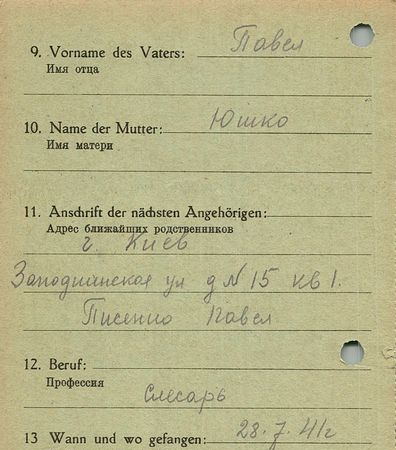 9. Vorname des Vaters: Павел
Имя отца
10. Name der Mutter: Юшко
Имя матери
11. Anschrift der nächsten Angehörigen:
Адрес ближайших родственников
г. Киев
ул д N 15 кв 1.
Павел
12. Beruf:
Профессия
Слесарь
13 Wann und wo gefangen: 28.7.41г